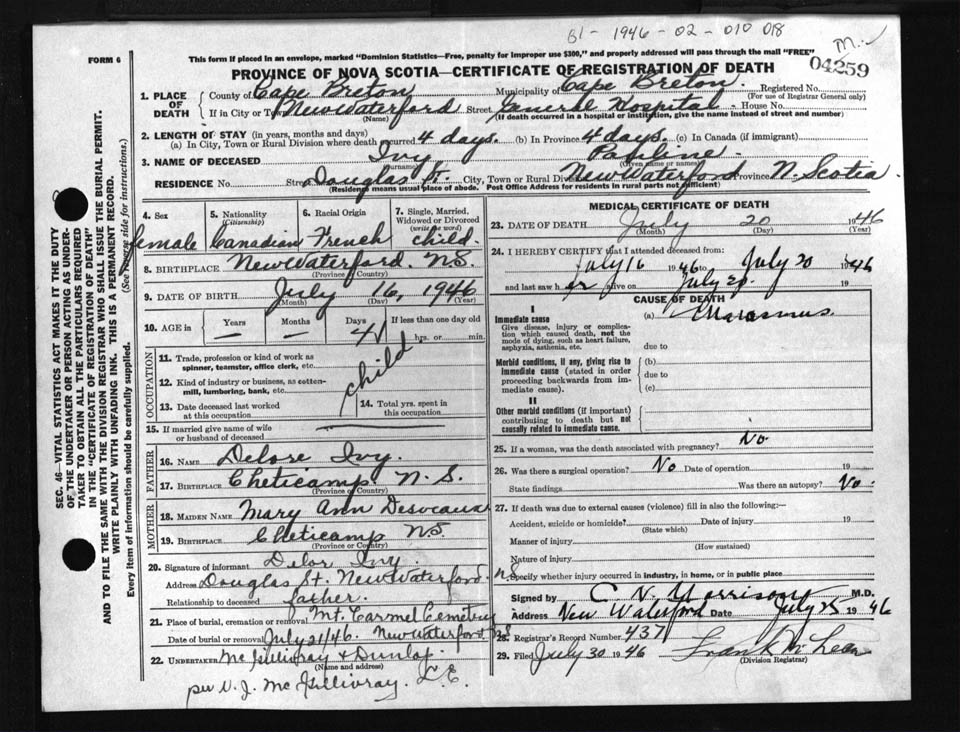 B1 - 1946 - 02 - 010 018
This form if placed in an envelope, marked "Dominion Statistics—Free, penalty for improper use $300," and properly addressed will pass through the mail "FREE"
FORM 6
04259
PROVINCE OF NOVA SCOTIA—CERTIFICATE OF REGISTRATION OF DEATH
1. PLACE OF DEATH County of Cape Breton Municipality of Cape Breton Registered No. (For use of Registrar General only)
If in City or Town New Waterford (Name) Street General Hospital - House No.
(If death occurred in a hospital or institution, give the name instead of street and number)
2. LENGTH OF STAY (in years, months and days)
(a) In City, Town or Rural Division where death occurred 4 days. (b) In Province 4 days. (c) In Canada (if immigrant)
3. NAME OF DECEASED Ivy Pauline. (Given name or names)
RESIDENCE No. Street Douglas St. City, Town or Rural Division New Waterford Province N. Scotia.
(Residence means usual place of abode. Post Office Address for residents in rural parts not sufficient)
4. Sex female
5. Nationality (Citizenship) Canadian
6. Racial Origin French
7. Single, Married, Widowed or Divorced (write the word) child.
8. BIRTHPLACE New Waterford. N.S. (Province or Country)
9. DATE OF BIRTH July 16, 1946 (Month) (Day) (Year)
10. AGE in Years — Months — Days 4 If less than one day old hrs. or min.
OCCUPATION
11. Trade, profession or kind of work as spinner, teamster, office clerk, etc.
12. Kind of industry or business, as cotton-mill, lumbering, bank, etc.
child
13. Date deceased last worked at this occupation
14. Total yrs. spent in this occupation
15. If married give name of wife or husband of deceased
FATHER
16. NAME Delore Ivy.
17. BIRTHPLACE Cheticamp N.S. (Province or Country)
MOTHER
18. MAIDEN NAME Mary Ann Desveaux
19. BIRTHPLACE Cheticamp N.S. (Province or Country)
20. Signature of informant Delor Ivy.
Address Douglas St. New Waterford. N.S.
Relationship to deceased father.
21. Place of burial, cremation or removal Mt. Carmel Cemetery
Date of burial or removal July 21/46. New Waterford, N.S.
22. UNDERTAKER McGillivray & Dunlop. (Name and address)
per V. J. McGillivray. L.E.
MEDICAL CERTIFICATE OF DEATH
23. DATE OF DEATH July 20 1946 (Month) (Day) (Year)
24. I HEREBY CERTIFY that I attended deceased from:
July 16 1946 to July 20 1946
and last saw her alive on July 20. 19
CAUSE OF DEATH
I
Immediate cause
Give disease, injury or complication which caused death, not the mode of dying, such as heart failure, asphyxia, asthenia, etc.
(a) Marasmus.
due to
Morbid conditions, if any, giving rise to immediate cause (stated in order proceeding backwards from immediate cause).
(b)
due to
(c)
II
Other morbid conditions (if important) contributing to death but not causally related to immediate cause.
25. If a woman, was the death associated with pregnancy? No
26. Was there a surgical operation? No Date of operation 19
State findings Was there an autopsy? No.
27. If death was due to external causes (violence) fill in also the following:—
Accident, suicide or homicide? (State which) Date of injury 19
Manner of injury (How sustained)
Nature of injury
Specify whether injury occurred in industry, in home, or in public place
Signed by C. N. Morrison M.D.
Address New Waterford Date July 25 1946
28. Registrar's Record Number 437
29. Filed July 30 1946 Frank McLean (Division Registrar)
SEC. 46—VITAL STATISTICS ACT MAKES IT THE DUTY
OF THE UNDERTAKER OR PERSON ACTING AS UNDER-
TAKER TO OBTAIN ALL THE PARTICULARS REQUIRED
IN THE "CERTIFICATE OF REGISTRATION OF DEATH"
AND TO FILE THE SAME WITH THE DIVISION REGISTRAR WHO SHALL ISSUE THE BURIAL PERMIT.
WRITE PLAINLY WITH UNFADING INK. THIS IS A PERMANENT RECORD.
Every item of information should be carefully supplied. (See reverse side for instructions.)